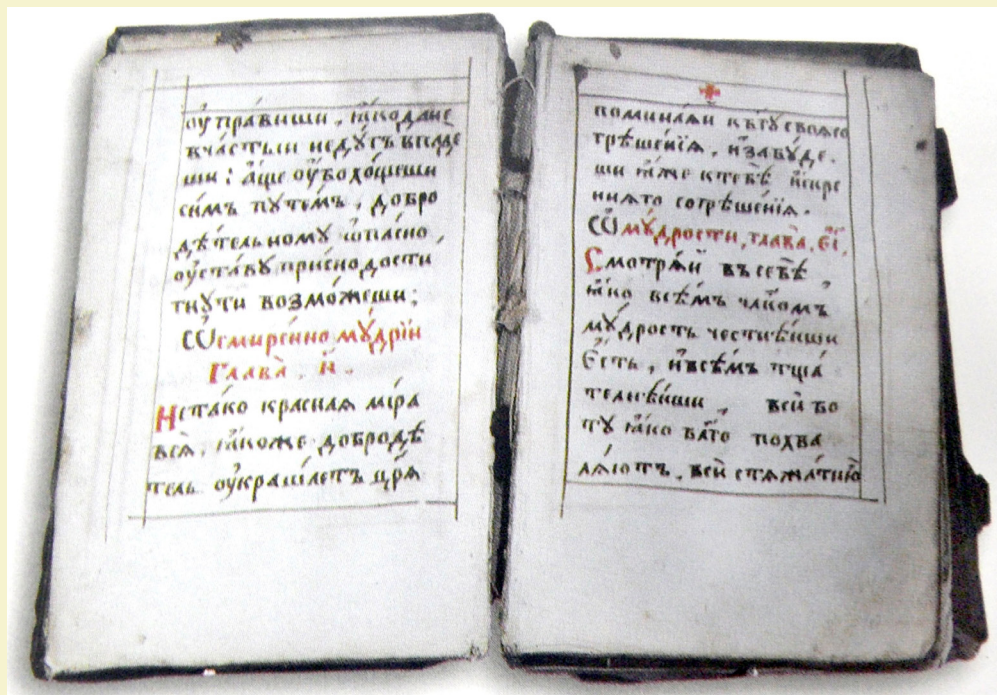 оу҆пра́виши, ꙗ҆кода́не
вча́стыи недꙋ́гъ впаде
ши: а҆́ще оу҆́бо хо́щеши
си́мъ пꙋте́мъ, добро
дѣ́тельномꙋ ѡ҆па́сно,
оу҆ста́вꙋ при́сно дости
гнꙋти возмо́жеши;
Ѿ смире́нно мꙋ́дрїи
Глава̀. н҃.
Не та́ко красная мі́ра
всѧ̀, ꙗ҆́коже доброде́
тель оу҆краша́етъ цр҃ѧ̀
помина́ѧй къ бг҃ꙋ своѧ̀ со
грѣше́нїѧ, и҆забꙋ́де
ши ꙗ҆́же к тебѣ̀ и҆́скре
нѧ́го согрѣше́нїѧ.
Ѿ мꙋ́дрости, глава̀, є҃і.
Смотрѧ́й въ себѣ̀,
ꙗ҆́ко всѣ́мъ чл҃ко́мъ
мꙋ́дрость честнѣ́йши
є҆́сть, и҆ всѣ́мъ тща́
телнѣ́йши, всѝ бо
тꙋ̀ ꙗ҆́ко бл҃го похва
лѧ́ютъ, всѝ стѧжа́тию